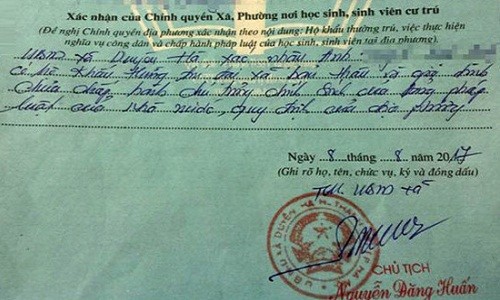 Xác nhận của Chính quyền Xã, Phường nơi học sinh, sinh viên cư trú
(Đề nghị Chính quyền địa phương xác nhận theo nội dung: Hộ khẩu thường trú, việc thực hiện
nghĩa vụ công dân và chấp hành pháp luật của học sinh, sinh viên tại địa phương).
UBND Xã Duyên Hà, xác nhận
Có hộ khẩu thường trú tại xã bản thân và gia đình
Chưa chấp hành chủ
luật của Nhà nước, quy định của địa phương
Ngày 8 tháng 8 năm 2017
(Ghi rõ họ, tên, chức vụ, ký và đóng dấu)
TM. UBND Xã
CHỦ TỊCH
Nguyễn Đăng Huấn